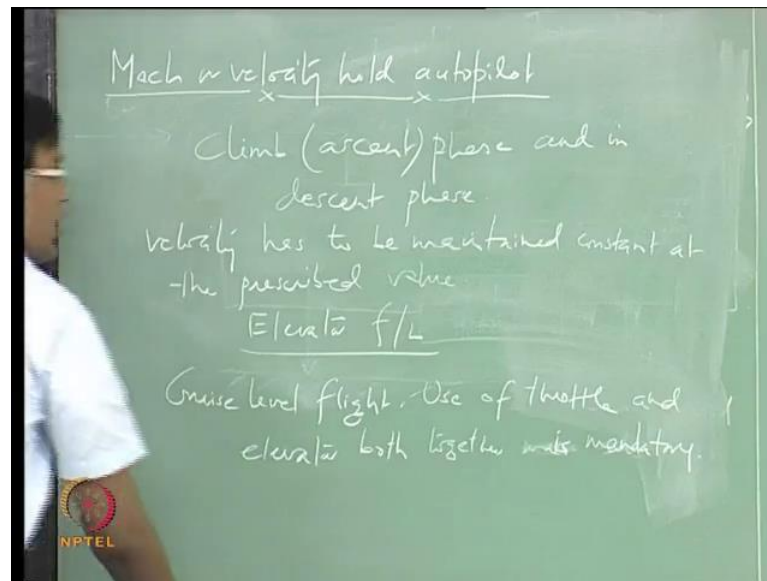 Mach or velocity hold autopilot
Climb (ascent) phase and in
descent phase.
velocity has to be maintained constant at
the prescribed value
Elevator f/L
Cruise level flight. Use of throttle and
elevator both together is mandatory.
NPTEL